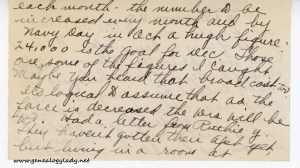 each month - the number to be
increased every month and by
Navy Day in Oct a huge figure.
24,000 is the goal for Dec. Those
are some of the figures I caught.
Maybe you heard that broadcast too.
It's logical to assume that as the
force is decreased the hrs will be
too. Had a letter from Ruthie G.
They haven't gotten their apt yet
but living in a room at
www.genealogylady.net